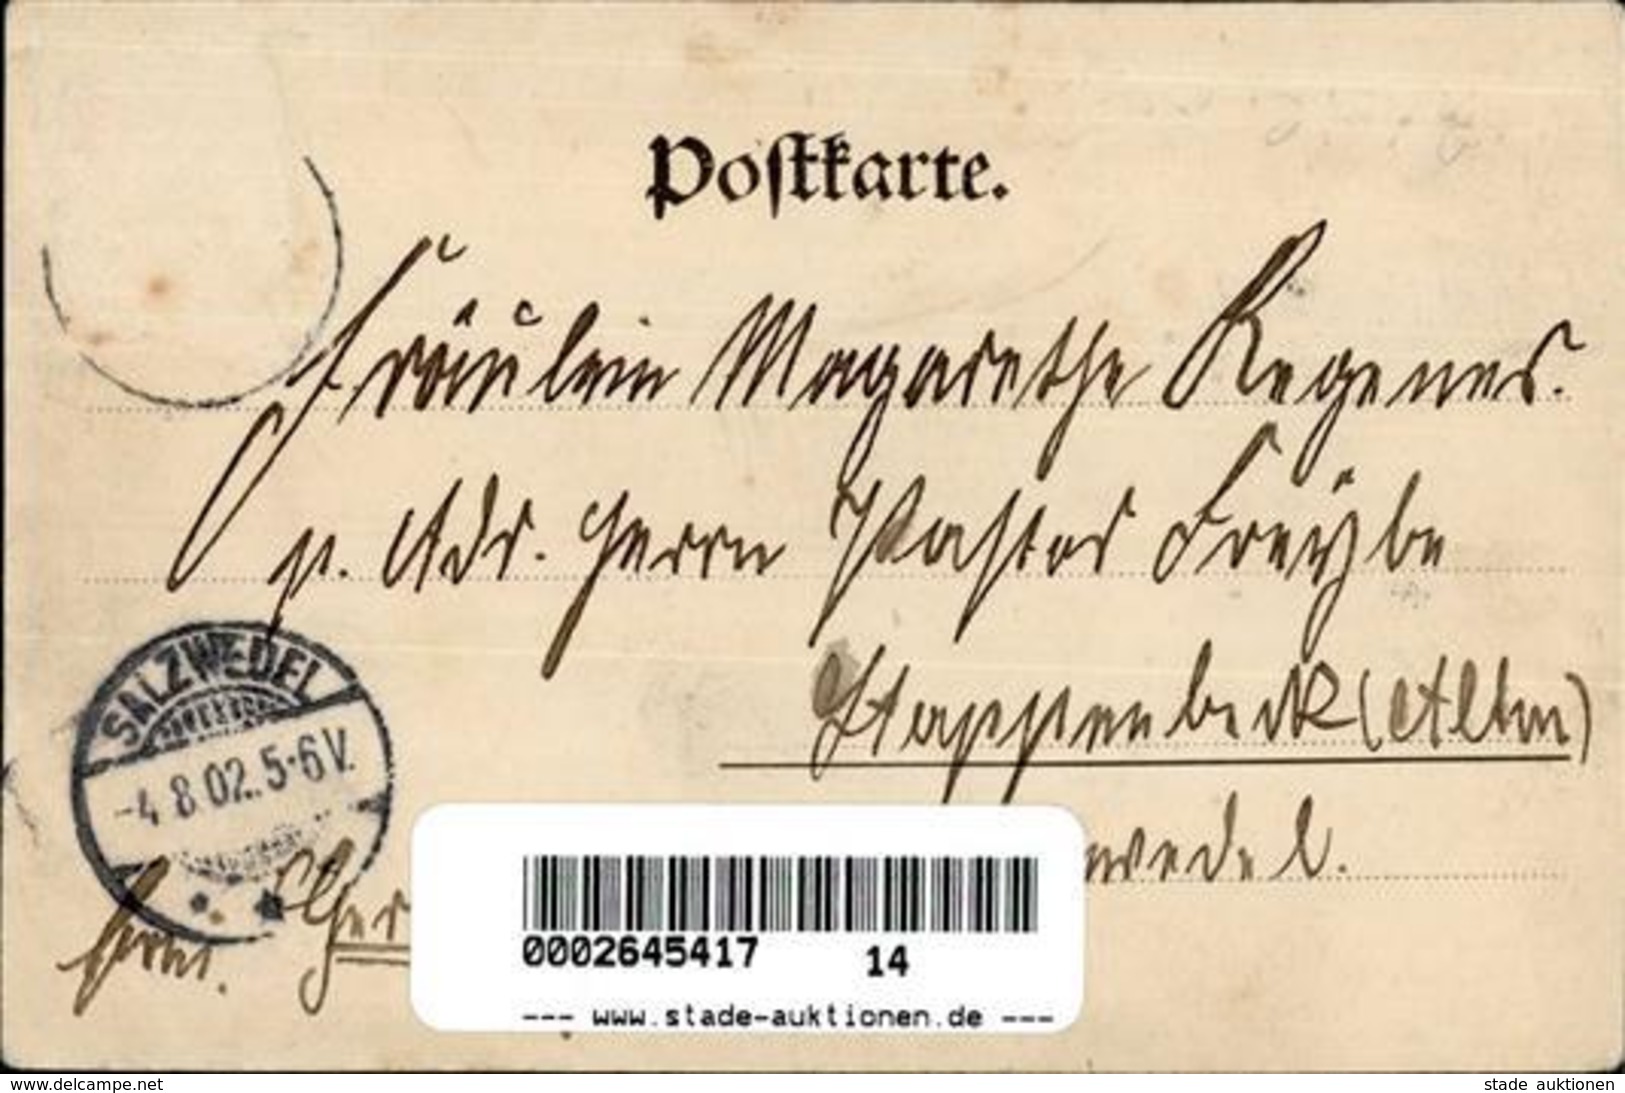 Postkarte.
Fräulein Magarethe Regener.
p. Adr. Herrn Pastor Freÿbe
Stappenbeck (Altm)
wedel.
SALZWEDEL
-4.8.02.5-6V.
0002645417 14
--- www.stade-auktionen.de ---
www.delcampe.net
stade auktionen